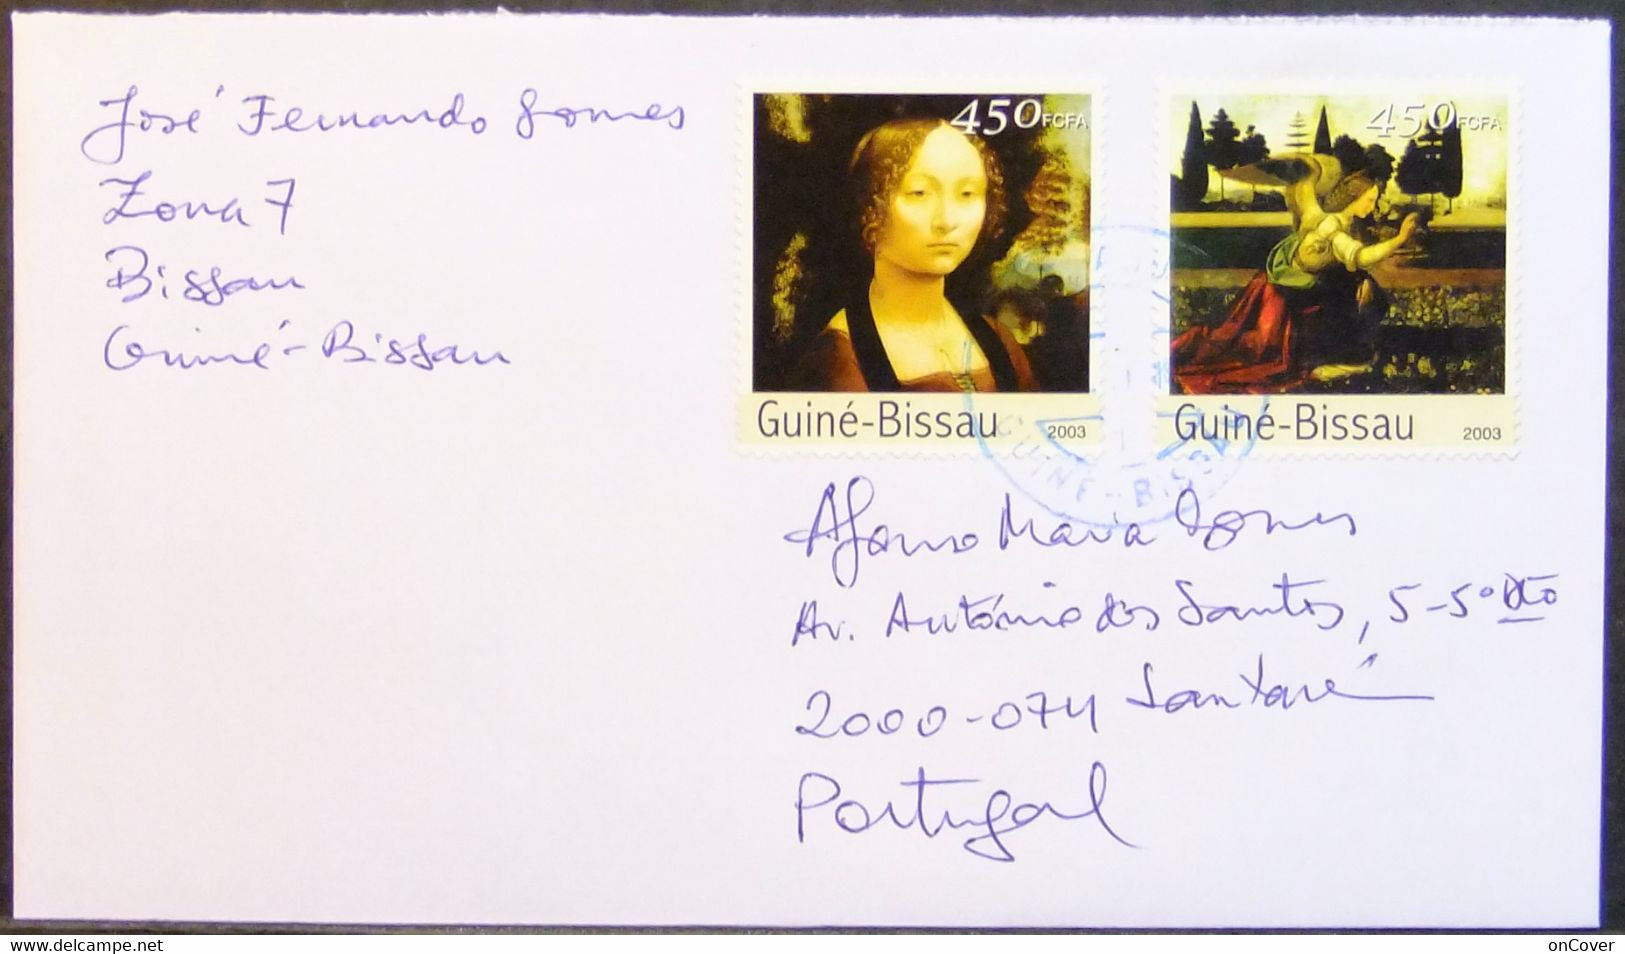 José Fernando Gomes
Zona 7
Bissau
Guiné-Bissau
450 FCFA
Guiné-Bissau 2003
450 FCFA
Guiné-Bissau 2003
GUINÉ-BISSAU
Afonso Maria Gomes
Av. António dos Santos, 5-5º Dto
2000-074 Santarém
Portugal
www.delcampe.net
onCover